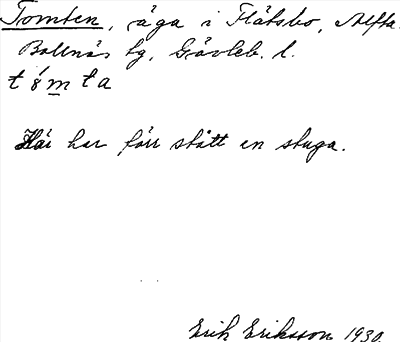 Tomten, äga i Flätsbo, Alfta.
Bollnäs tg, Gävleb. l.
tómta
Här har förr stått en stuga.
Erik Eriksson 1930.